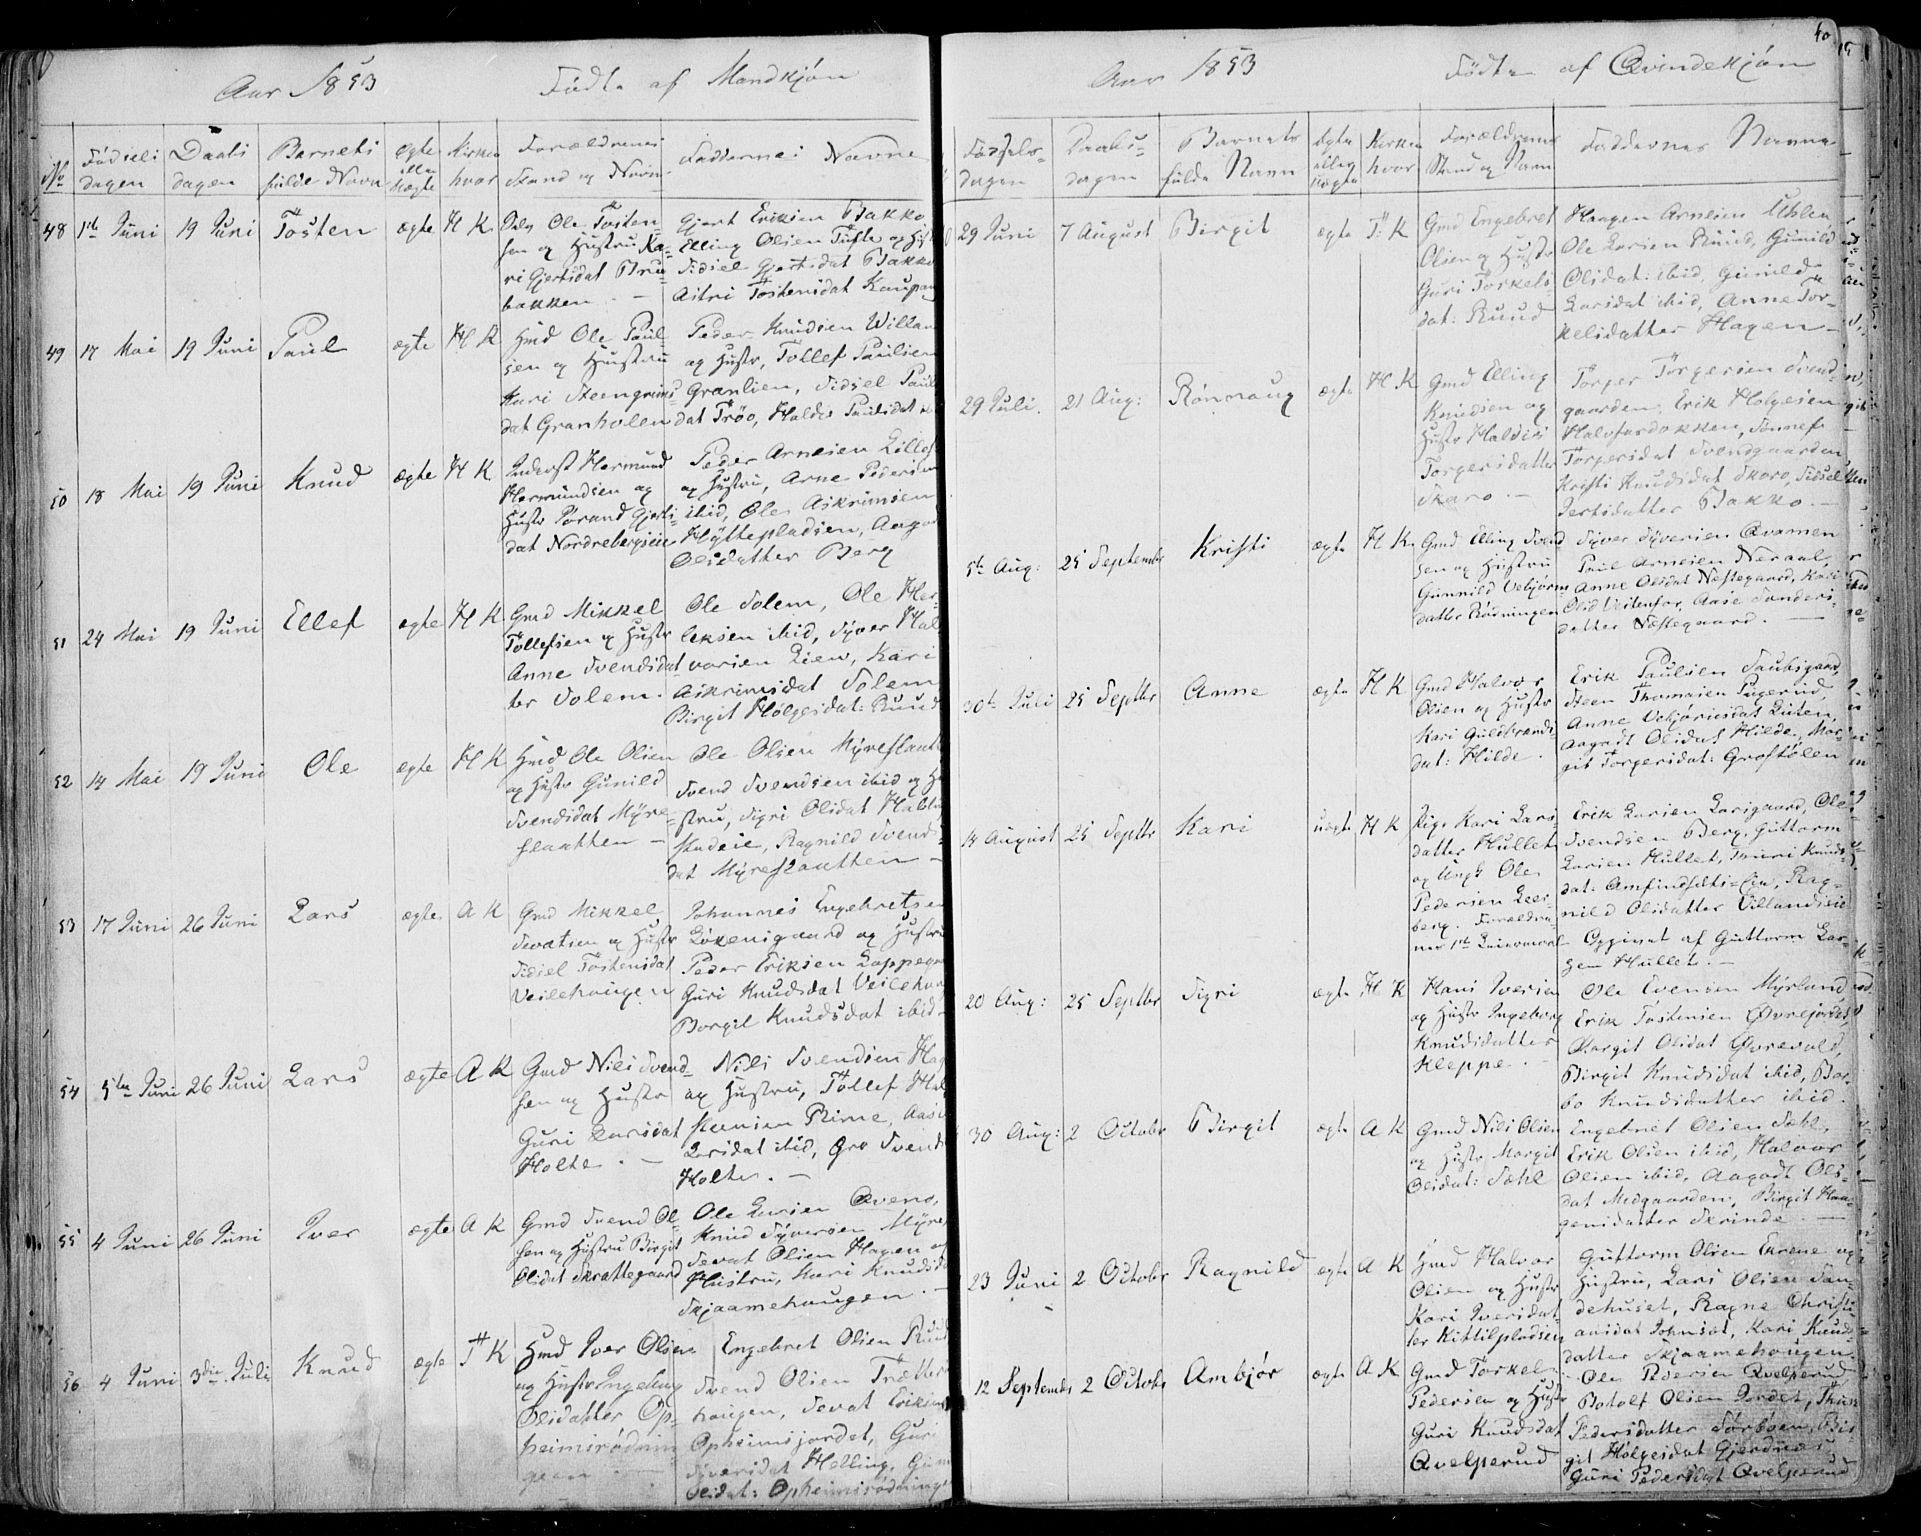 Aar 1853 Födte af Mandkjøn
No Födsels dagen Daabs dagen Barnets fulde Navn ægte eller uægte Kirken hvor Forældrenes Stand og Navn Faddernes Navne
48 1ste Juni 19 Juni Tosten ægte H K
Ole Tosten-
sen og Hustru Ka-
ri Gjertsdat Bru-
bakken. —
Gjert Eriksen Bakko
Elling Olsen Tufte og
Sidsel Gjertsdat Bakko
Astri Tostensdat
49 17 Mai 19 Juni Paul ægte H K
Hmd Ole Paul-
sen og Hustru
Kari Steengrims
dat Granholen
Peder Knudsen Willan
og Hustr, Tollef Paulsen
Granlien, Sidsel Paul
dat Trøo, Haldis Paulsdat
50 18 Mai 19 Juni Knud ægte H K
Inderst Hermund
Hermundsen og
Hustr Pørand Gjert-
dat Nordrebergseie
Peder Arnesen
og Hustru, Arne Pedersen
ibid, Ole Askrimsen
Hyttepladsen, Aagot
Olsdatter Berg
51 24 Mai 19 Juni Ellef ægte H K
Gmd Mikkel
Tollefsen og Hustr
Anne Svendsdat-
ter Solem.
Ole Solem, Ole Her-
leksen ibid, Syver Hal
vorsen Lien, Kari
Askrimsdat Solem
Birgit Holgesdat: Ruud
52 14 Mai 19 Juni Ole ægte H K
Hmd Ole Olsen
og Hustr Gunild
Svendsdat Myre-
slaatten —
Ole Olsen Myreslaatt
Svend Svendsen ibid og Hu
stru, Sigri Olsdat
Ragnild Svends-
dat Myreslaatten —
53 17 Juni 26 Juni Lars ægte A K
Gmd Mikkel
Sevatsen og Hustr
Sidsel Tostensdat
Veslehaugen
Johannes Engebretsen
Løkensgaard og Hustru
Peder Eriksen
Guri Knudsdat Veslehaug
Borgil Knudsdat ibid —
54 5te Juni 26 Juni Lars ægte A K
Gmd Nils Svend-
sen og Hustr
Guri Larsdat
Holte. —
Nils Svendsen Hag
og Hustru, Tollef
Rime, Aase
Larsdat ibid, Gro Svend
Holte. —
55 4 Juni 26 Juni Iver ægte A K
Gmd Svend Ol-
sen og Hustru Birgit
Olsdat Skrattegaard
Ole Larsen Qveno,
Knud Syversen Myre
Sevat Olsen Hagen og
Hustru, Kari Knudsda
Skjaamehaugen. —
56 4 Juni 3die Juli Knud ægte T K
Hmd Iver Olsen
og Hustr Ingeborg
Olsdatter Op-
heimsrødnin
gen. —
Engebret Olsen Ruud
Svend Olsen Trætte
haugen, Sevat Eriksen
Opheimsjordet, Guri
Syversdat Helling,
Olsdat: Opheimsrødningen
40
Aar 1853 Födte af Qvindekjön
Födsels-dagen Daabs-dagen Barnets fulde Navn ægte eller uægte Kirken hvor Forældrenes Stand og Navn Faddernes Navne
29 Juni 7 August Birgit ægte T: K
Gmd Engebret
Olsen og Hustr
Guri Torkels
dat: Ruud
Haagen Arnesen Uhlen
Ole Larsen Ruud, Gunild
Olsdat: ibid, Gunild
Larsdat ibid, Anne Tor-
kelsdatter Hagen —
29 Juli. 21 Aug: Rønnaug ægte H K
Gmd Elling
Knudsen og
Hustr Haldis
Torgersdatter
Skaro. —
Torger Torgersen Svend-
gaarden, Erik Holgesen
Halvfardokken, Sønnef
Torgersdat Svendgaarden
Kristi Knudsdat Skoro, Sidsel
Gertsdatter Bakko. —
5te Aug: 25 September Kristi ægte H K
Gmd Elling Svend
sen og Hustru
Gunnild Vebjørns
datter Rødningen
Syver Syversen Qvamen
Paul Arnesen Neraal,
Anne Olsdat Næstegaard, Kari
Olsd Veitenfor, Aase Sanders-
datter Næstegaard. —
30te Juli 25 Septbr Anne ægte H K
Gmd Halvor
Olsen og Hustr
Kari Guldbrands-
dat: Hilde
Erik Paulsen Saubsgaard,
Steen Thomasen Pugerud,
Anne Vebjørnsdat Liiten,
Aagodt Olsdat Hilde, Mar-
git Torgersdat: Grøstølen
14 August 25 Septbr Kari uægte H K
Pige Kari Lars
datter Hullet
og Ungk Ole
Pedersen Lees-
berg. Forældre
nes 1ste Leiermaal
Erik Larsen Larsgaard, Ole
Svendsen Berg, Guttorm
Larsen Hullet, Thuri Knuds-
dat: Amfindsæts-Lia, Rag-
nild Olsdatter Villandseie
Opgivet af Guttorm Lar-
sen Hullet. —
20 Aug: 25 Septbr Sigri ægte H K
Hans Iversen
og Hustr Ingeborg
Knudsdatter
Kleppe. —
Ole Evensen Myrland
Erik Tostensen Øvrejordet,
Margit Olsdat Øvrevold,
Birgit Knudsdat ibid, Bar-
bo Knudsdatter ibid.
30 Aug: 2 October Birgit ægte A K
Gmd Nils Olsen
og Hustr Margit
Olsdat: Sæhl
Engebret Olsen Sæhl
Erik Olsen ibid, Halvor
Olsen ibid, Aagodt Ols-
dat Midgaarden, Birgit Haa-
gensdatter Strinde. —
23 Juni 2 Octobr Ragnild ægte A K
Hmd Halvor
Olsen og Hustr
Kari Iversdat-
ter Kittilpladsen
Guttorm Olsen Ekrene og
Hustru, Lars Olsen San-
dehuset, Ragne Christi-
ansdat Johnsøt, Kari Knuds-
datter Skjaamehaugen.
12 September 2 Octobr Ambjør ægte A K
Gmd Torkel
Pedersen og Hustr
Guri Knudsdat
Qvelperud
Ole Pedersen Qvelperud
Botolf Olsen Jordet, Thuri
Pedersdatter Sørbøen, Bir-
git Holgesdat Gjerdnes
Guri Pedersdat Qvelperud